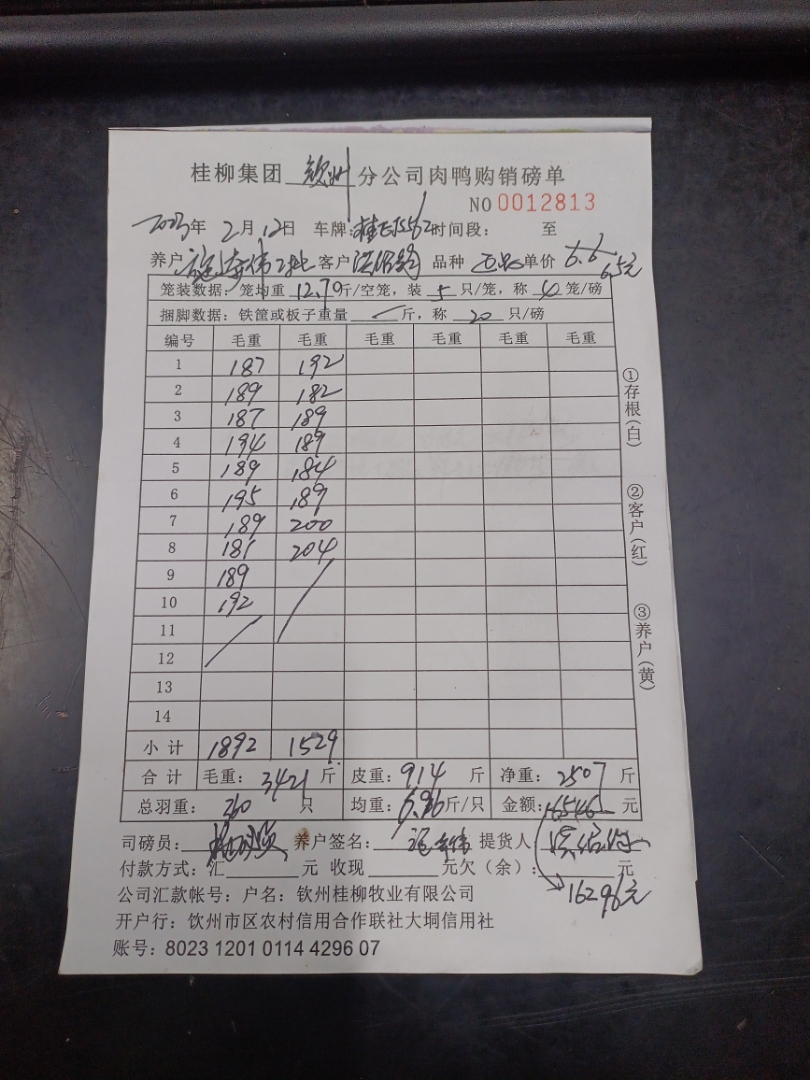 桂柳集团 钦州 分公司肉鸭购销磅单
NO 0012813
2023年 2月12日 车牌: 时间段: 至
养户 客户 品种 单价 6.6 6.5元
笼装数据: 笼均重 12.70 斤/空笼, 装 5 只/笼, 称 4 笼/磅
捆脚数据: 铁筐或板子重量 斤, 称 20 只/磅
编号 毛重 毛重 毛重 毛重 毛重 毛重
1 187 192
2 189 182
3 187 189
4 194 189
5 189 184
6 195 189
7 189 200
8 181 204
9 189
10 192
11
12
13
14
小计 1892 1529
合计 毛重: 3421 斤 皮重: 914 斤 净重: 2507 斤
总羽重: 360 只 均重: 6.96 斤/只 金额: 16546 元
司磅员: 养户签名: 提货人
付款方式: 汇 元 收现 元欠(余): 元
16296元
公司汇款帐号: 户名: 钦州桂柳牧业有限公司
开户行: 钦州市区农村信用合作联社大垌信用社
账号: 8023 1201 0114 4296 07
①存根(白)
②客户(红)
③养户(黄)